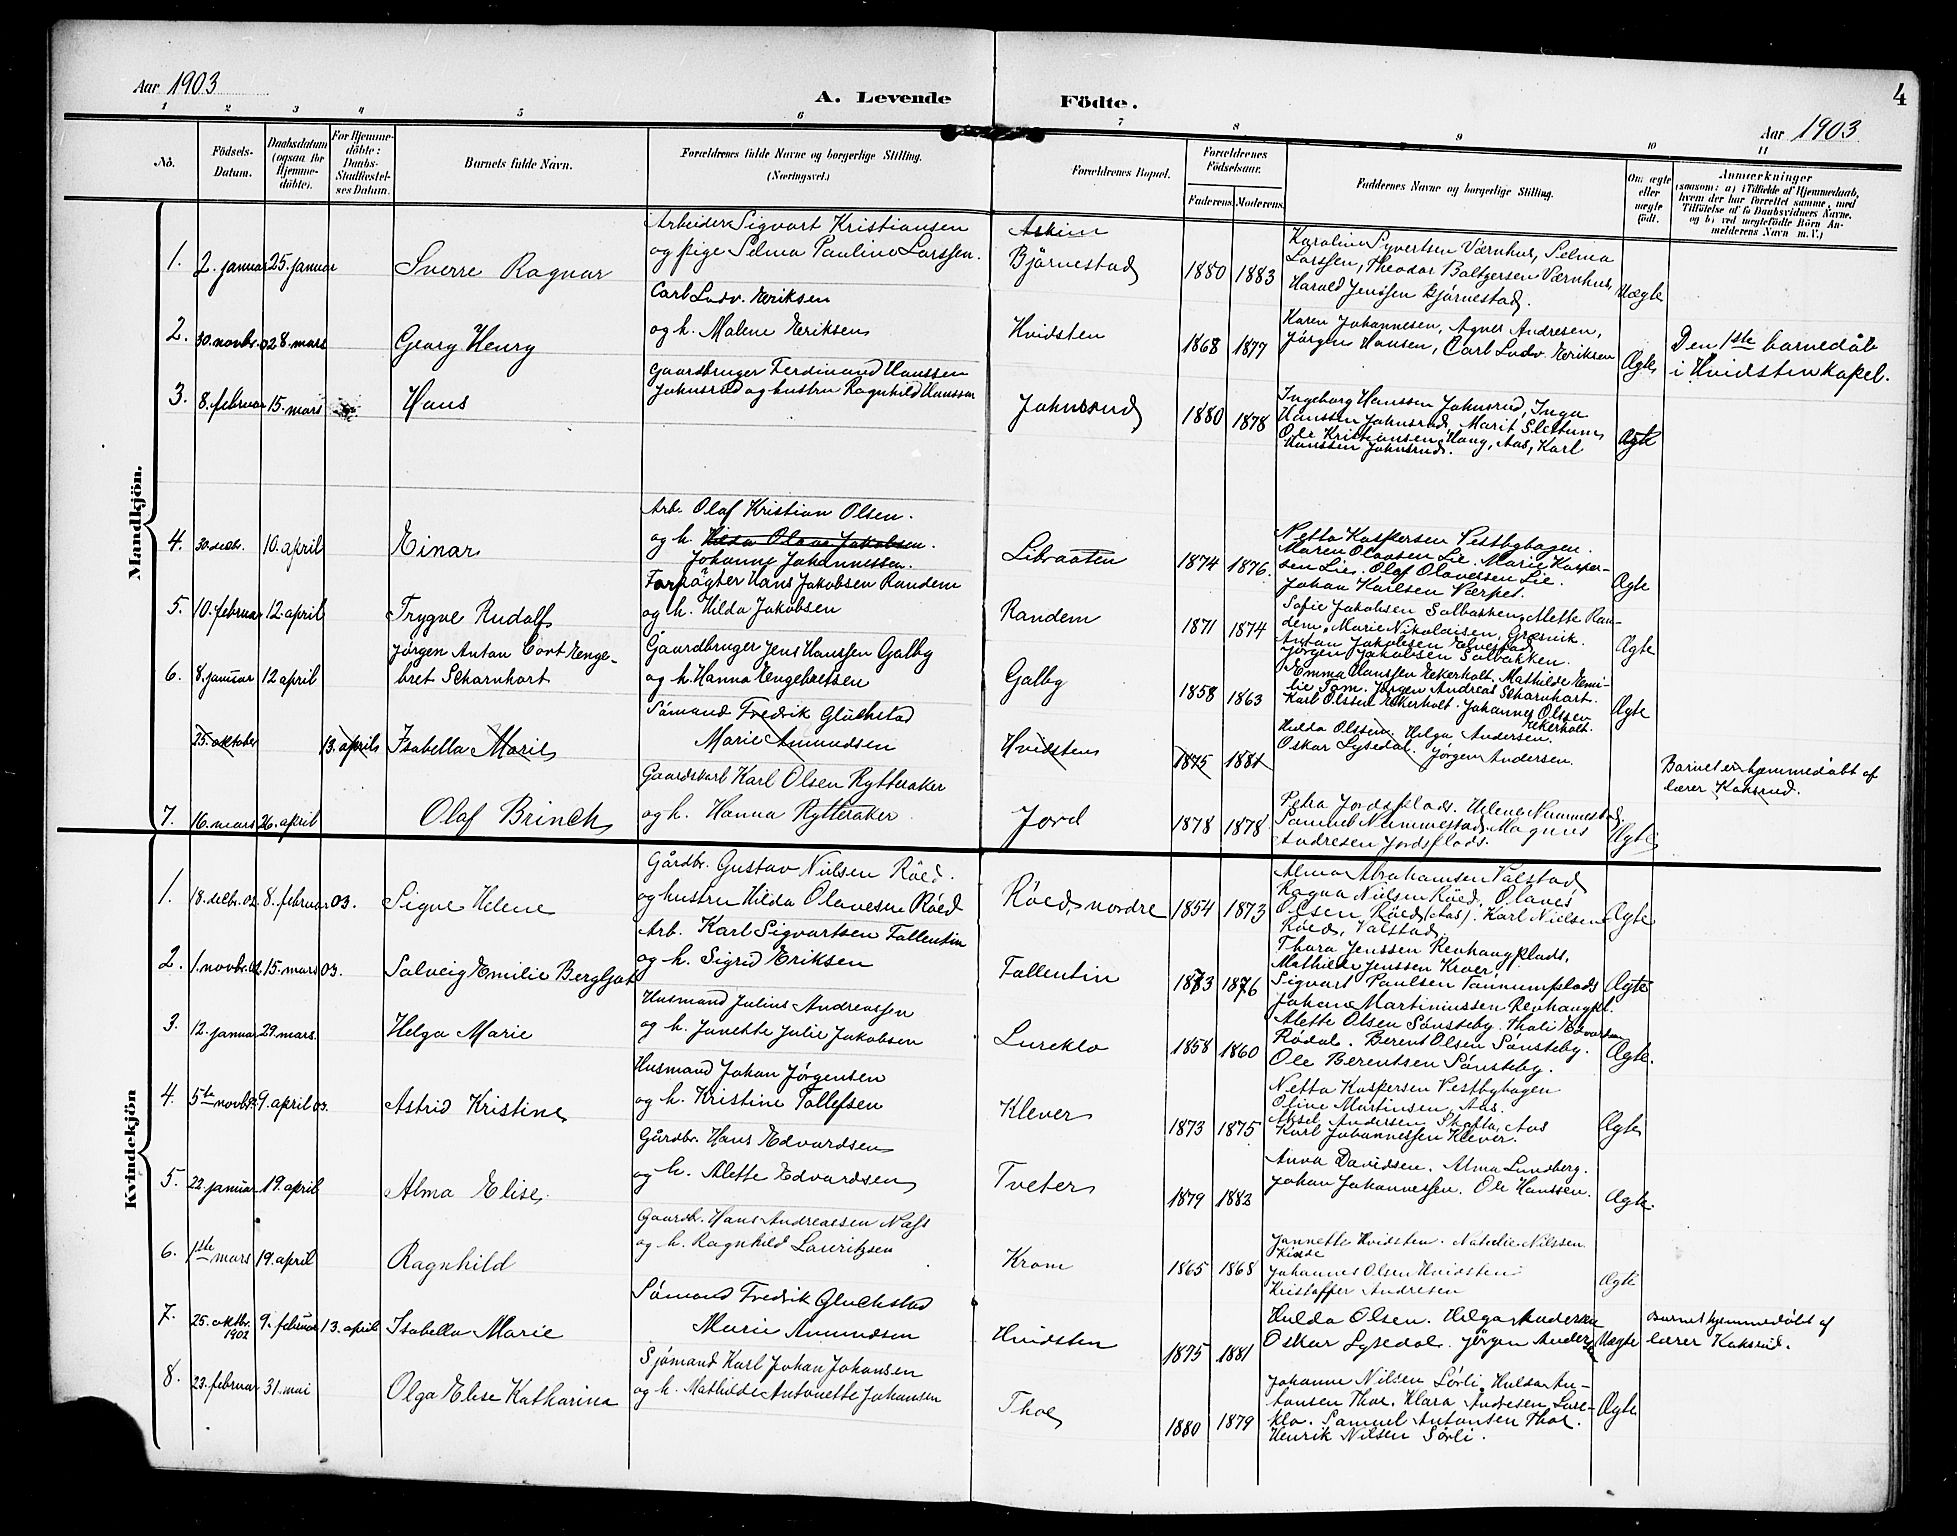 Aar 1903
A. Levende Födte.
4
Aar 1903
1 2 3 4 5 6 7 8 9 10 11
No.
Födsels-
Datum.
Daabsdatum
(ogsaa for
Hjemme-
döbte).
For Hjemme-
döbte:
Daabs-
Stadfæstel-
ses Datum.
Barnets fulde Navn.
Forældrenes fulde Navne og borgerlige Stilling.
(Næringsvei.)
Forældrenes Bopæl.
Forældrenes
Födselsaar.
Faderens. Moderens.
Faddernes Navne og borgerlige Stilling.
Om ægte
eller
uægte
født.
Anmærkninger
(saasom: a) i Tilfælde af Hjemmedaab,
hvem der har forrettet samme, med
Tilføielse af to Daabsvidners Navne,
og b) ved uægtefødte Börn An-
melderens Navn m. V.)
Mandkjön.
1. 2. januar 25. januar Sverre Ragnar
Arbeider Sigvart Kristiansen
og pige Selma Pauline Larssen.
Askim
Bjørnestad
1880 1883
Karoline Syvertsen Værnhus, Selma
Larssen, Theodor Baltzersen Værnhus,
Harald Jenssen Bjørnestad.
Uægte
2. 30. novbr. 02 8. mars Georg Henry
Carl Ludv. Eriksen
og h. Malene Eriksen
Hvidsten
1868 1877
Karen Johannesen, Agnes Andresen,
Jørgen Hansen, Carl Ludv. Eriksen
Ægte
Den 1ste barnedåb
i Hvidsten kapel.
3. 8. februar 15. mars Hans
Gaardbruger Ferdinand Hanssen
Johnsrud og hustru Ragnhild Hanssen
Johnsrud
1880 1878
Ingeborg Hanssen Johnsrud, Inga
Hanssen Johnsrud, Marit Slettum,
Ole Kristiansen Haug, Aas, Karl
Hanssen Johnsrud.
Ægte
4. 30. decbr. 10. april Einar
Arb. Olaf Kristian Olsen.
og h. Hilda Olava Jakobsen.
Johanne Johannessen.
Libraaten
1874 1876.
Netta Kaspersen Vestbyhagen.
Maren Olavsen Lie. Marie Kasper-
sen Lie. Olaf Olavessen Lie.
Johan Karlsen Værpet.
Ægte
5. 10. februar 12. april Trygve Rudolf
Forpagter Hans Jakobsen Randem
og h. Hilda Jakobsen
Randem
1871 1874
Sofie Jakobsen Solbakken, Alette Ran-
dem, Marie Nikolaisen, Græsvik.
Anton Jakobsen
Jørgen Jakobsen Solbakken.
Ægte
6. 8. januar 12 april
Jørgen Anton Cort Enge-
bret Scharnhort
Gaardbruger Jens Hanssen Galby
og h. Hanna Engebretsen
Galby
1858 1863
Emma Hanssen Ekerholt. Mathilde Emi-
lie Som. Jørgen Andreas Scharnhort.
Karl Olssen Ekerholt. Johannes Olssen
Ekerholt.
Ægte
25. oktober 13. april Isabella Marie
Sømand Fredrik Glückstad
Marie Amundsen
Hvidsten
1875 1881
Hilda Olssen. Helga Andersen.
Oskar Lysedal. Jørgen Andersen.
Barnet er hjemmedøbt af
lærer Koksrud.
7. 16. mars 26. april Olaf Brinch
Gaardskarl Karl Olsen Rytteraker
og h. Hanna Rytteraker
Jord
1878 1878
Petra Jordsplads. Helene Nummestad.
Samuel Nummestad. Magnus
Andresen Jordsplads.
Ægte
Kvindekjön
1. 18. decbr. 02. 8. februar 03. Signe Helene
Gårdbr. Gustav Nielsen Röed.
og hustru Hilda Olavesen Röed
Röed, nordre
1854 1873
Alma Abrahamsen Valstad
Ragna Nielsen Röed, Olaves
Olsen, Röed, (Aas). Karl Nielsen
Röed, Valstad.
Ægte
2. 1. novbr. 02. 15. mars 03. Solveig Emilie Bergljot
Arb. Karl Sigvartsen Follentin
og h. Sigrid Eriksen
Follentin
1873 1876
Thora Jenssen Revhaugplads,
Mathilde Jenssen Kroer,
Sigvart Paulsen Tannumplads
Johan Martiniussen Revhaugpl.
Ægte
3. 12. januar 29. mars. Helga Marie
Husmand Julius Andreassen
og h. Janette Julie Jakobsen
Lureklo
1858 1860
Alette Olsen Sønsteby. Thali Edvardsen
Rødal. Berent Olsen Sønsteby.
Ole Berentsen Sønsteby.
Ægte.
4. 5te novbr. 9. april 03. Astrid Kristine
Husmand Johan Jørgensen
og h. Kristine Tollefsen
Klever
1873 1875
Netta Kaspersen Vestbyhagen
Oline Martinsen, Aas.
Aksel Andersen Skofta, Aas
Karl Johannessen Klever.
Ægte
5. 22. januar 19. april Alma Elise.
Gårdbr. Hans Edvardsen
og h. Alette Edvardsen
Tveter
1879 1883
Anna Davidsen. Alma Lundberg.
Johan Johannessen. Ole Hanssen.
Ægte.
6. 1ste mars 19. april Ragnhild
Gaardbr. Hans Andreassen Næss
og h. Ragnhild Lauritzsen
Krom
1865 1868
Jannette Hvidsten. Natalie Nilssen
Johannes Olsen Hvidsten
Kristoffer Andresen
Ægte
7. 25. oktbr. 1902 9. februar 13. april Isabella Marie
Sømand Fredrik Gluckstad
Marie Amundsen
Hvidsten
1875 1881
Hulda Olsen. Helga Andersen
Oskar Lysedal. Jørgen Andersen
Uægte
Barnet hjemmedøbt af
lærer Koksrud.
8. 23. februar 31. mai Olga Elise Katharina
Sjømand Karl Johan Johansen
og h. Mathilde Antonette Johansen
Thoe
1880 1879
Johanne Nilsen Sørli. Hulda An-
tonsen Thoe. Klara Andresen Lure-
klo. Samuel Antonsen Thoe.
Henrik Nilsen Sørli.
Ægte